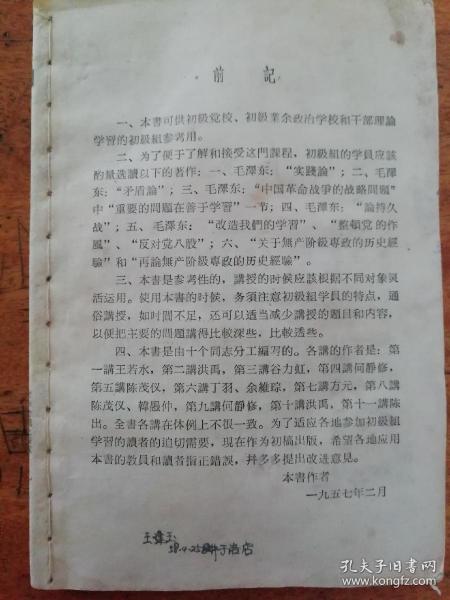 前記
一、本書可供初級党校、初級業余政治学校和干部理論
学習的初級組参考用。
二、为了便于了解和接受这門課程，初級組的学員应該
酌量选讀以下的著作：一、毛澤东：“实踐論”；二、毛澤
东：“矛盾論”；三、毛澤东：“中国革命战爭的战略問題”
中“重要的問題在善于学習”一节；四、毛澤东：“論持久
战”；五、毛澤东：“改造我們的学習”、“整頓党的作
風”、“反对党八股”；六、“关于無产阶級專政的历史經
驗”和“再論無产阶級專政的历史經驗”。
三、本書是参考性的，講授的时候应該根据不同对象灵
活运用。使用本書的时候，务須注意初級組学員的特点，通
俗講授，如时間不足，还可以适当减少講授的題目和内容，
以便把主要的問題講得比較深些，比較透些。
四、本書是由十个同志分工編写的。各講的作者是：第
一講王若水，第二講洪禹，第三講谷力虹，第四講何靜修，
第五講陈茂仪，第六講丁羽、余維琮，第七講方元，第八講
陈茂仪、韓愚仲，第九講何靜修，第十講洪禹，第十一講陈
出。全書各講在体例上不很一致。为了适应各地参加初級組
学習的讀者的迫切需要，現在作为初稿出版，希望各地应用
本書的教員和讀者指正錯誤，并多多提出改进意見。
本書作者
一九五七年二月
孔夫子旧書网
www.kongfz.com